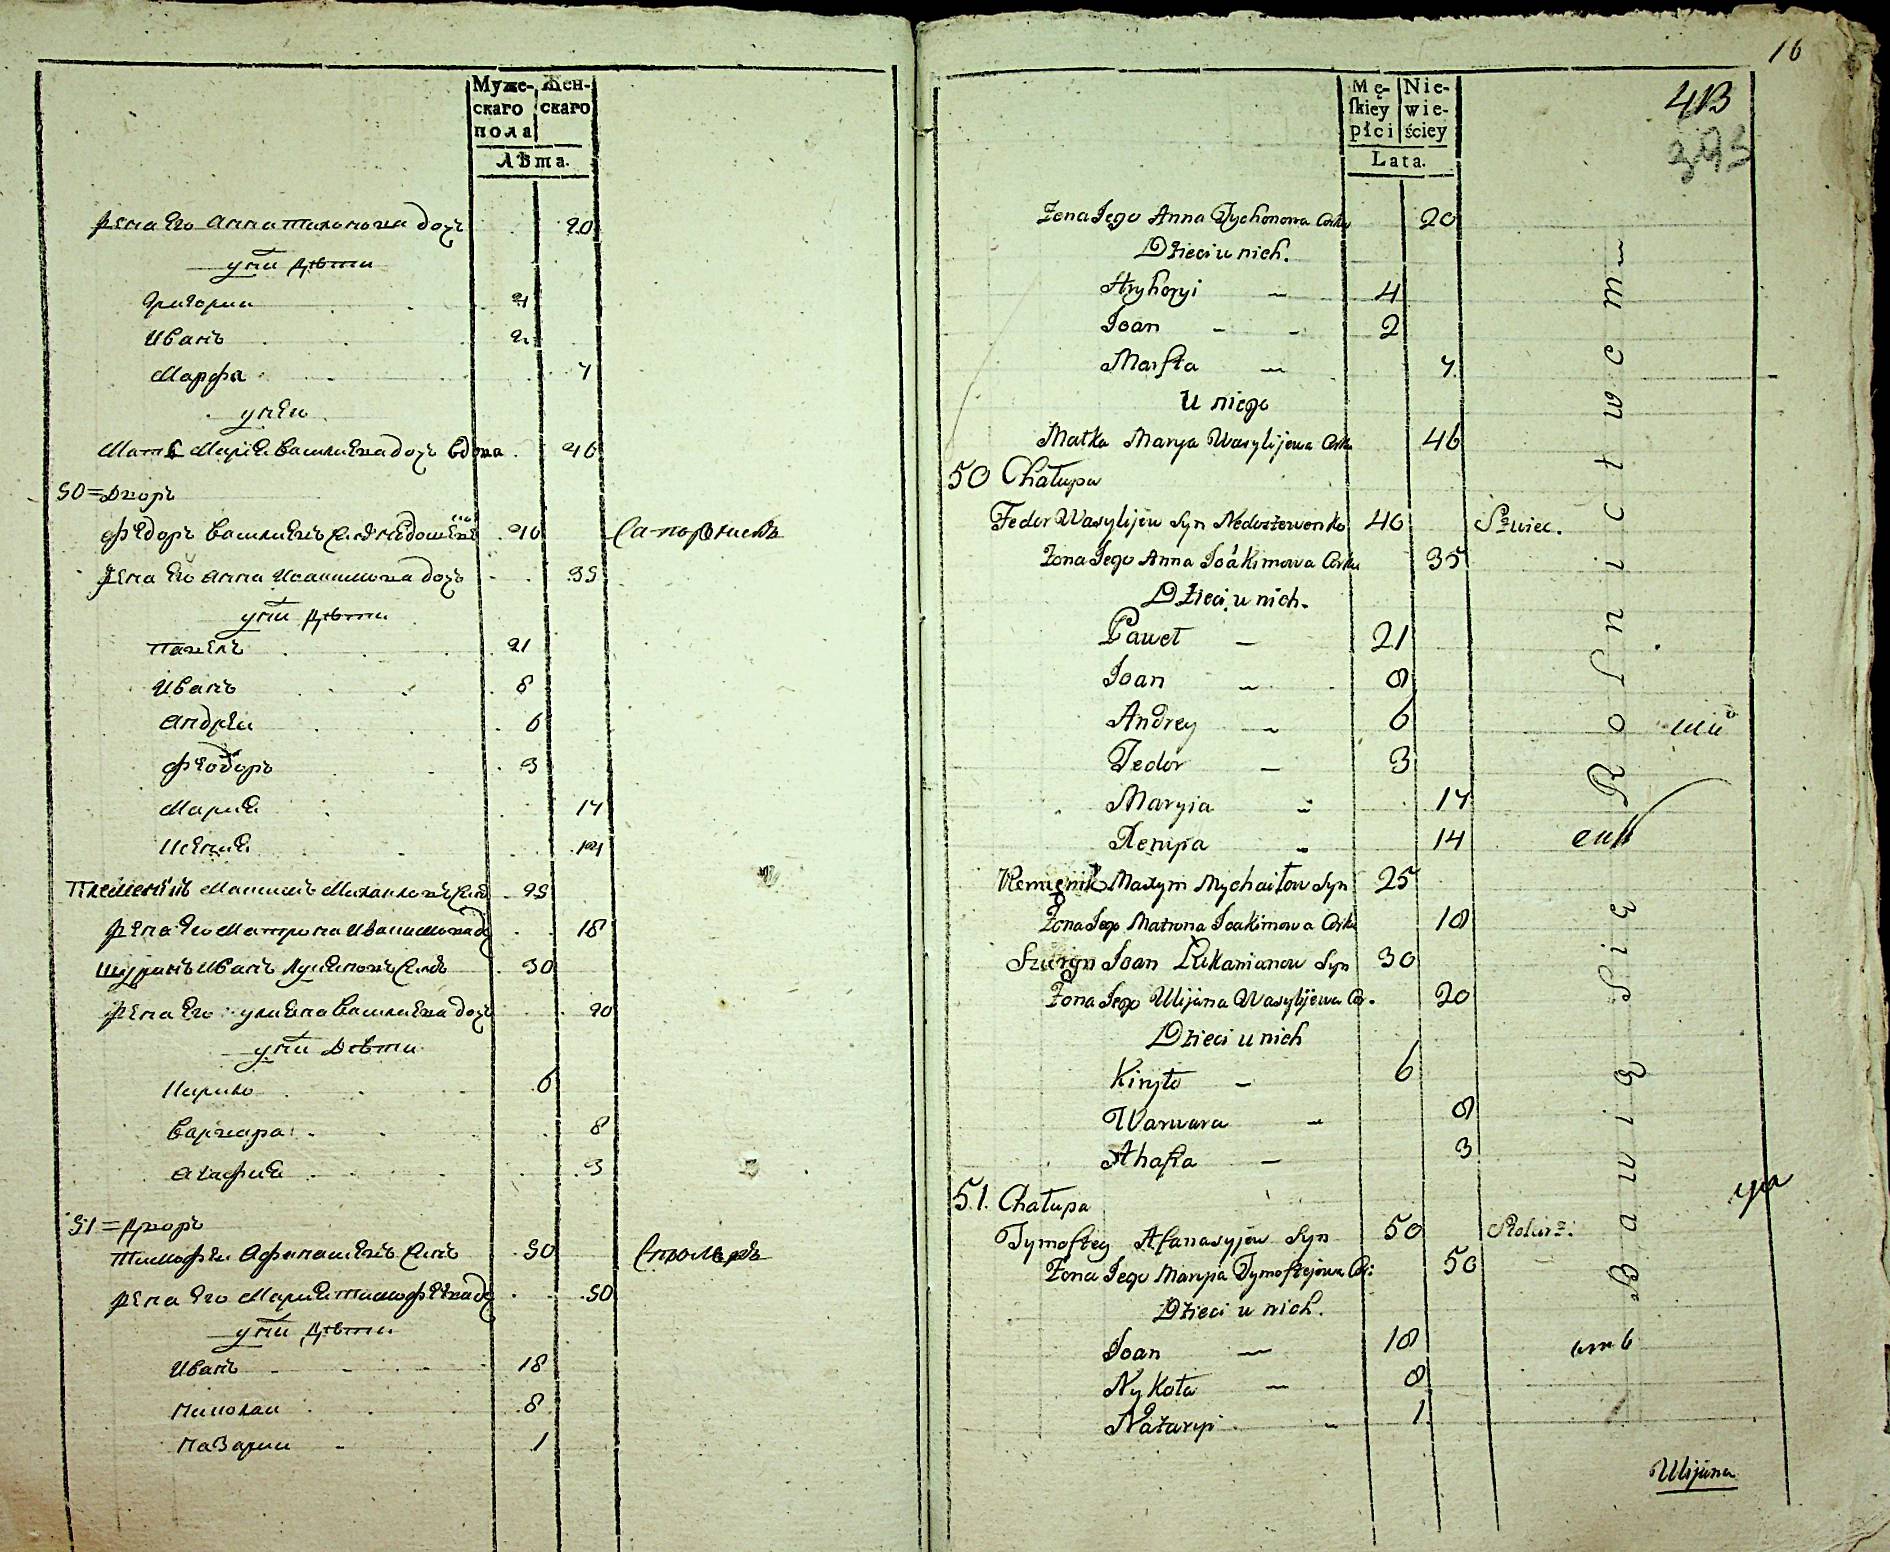 Муже- Жен-
скаго скаго
пола
Лѣта.
жена его Анна Тихонова дочь 20
у нй дѣти
Григории 4
Иванъ 2
Марфа 7
у нею
Мать Мария Василиева дочь вдова 46
50 = Дворъ
Федоръ Василиевъ Синъ 40
жена его Анна Иоакимова дочь 35
у нй дѣти
Павелъ 21
Иванъ 8
Андрей 6
Феодоръ 3
Мария 17
Ксения 14
Племенникъ Максимъ Михаиловъ Синъ 25
жена его Матрона Иоакимова до 18
Шуринъ Иванъ Лукиановъ Синъ 30
жена его Улиана Василиева дочь 20
у нй Дѣти
Кирило 6
Варвара 8
Агафия 3
51 = Дворъ
Тимофеи Афанасиевъ Синъ 50 Столяръ
жена его Мария Тимофеева до 50
у нй дѣти
Иванъ 18
Николаи 8
Назарии 1
16
Mę- Nie-
ſkiey wie-
płci ściey
Lata.
413
Żona Jego Anna Tychonowa Corka 20
Dzieci u nich.
Hryhoryi 4
Joan 2
Marfta 7
U niego
Matka Marya Wasylijewa Corka 46
50 Chałupa
Fedor Wasylijew Syn Nedoszewenko 40 Szwiec.
Żona Jego Anna Joákimowa Corka 35
Dzieci u nich.
Paweł 21
Joan 8
Andrey 6
Fedor 3
Maryia 17
Xenyia 14
Maxym Mychaiłow Syn 25
Żona Jego Matrona Joakimowa Corka 18
Szuryn Joan Łukianow Syn 30
Żona Jego Ulijana Wasylijewa Cor. 20
Dzieci u nich
Kiryło 6
Warwara 8
Ahafia 3
51. Chałupa
Tymoftey Afanasyjew Syn 50 Stolarz:
Żona Jego Maryia Tymoftejowa Cor: 50
Dzieci u nich.
Joan 18
Nykoła 8
Nazaryi 1
Ulijana